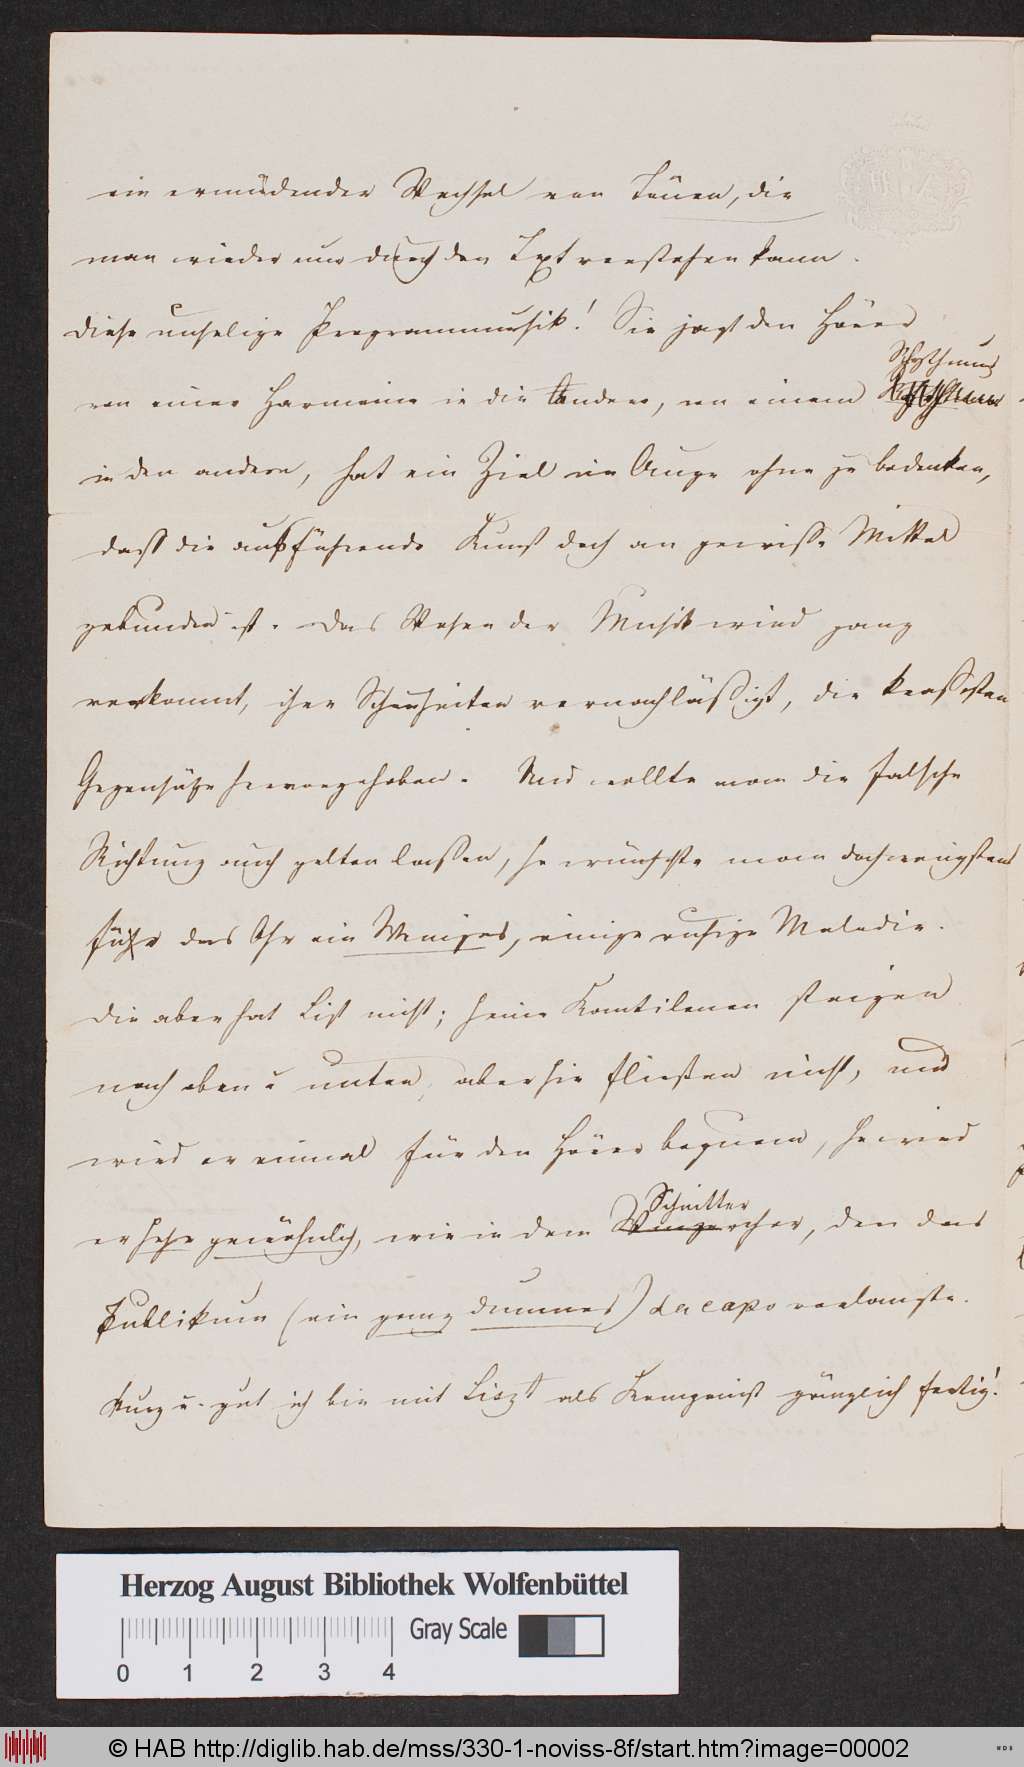 ein ermüdender Wechsel von Tönen, die
man wieder nur durch den Text verstehen kann.
Diese unselige Programmusik! Sie jagt den Hörer
von einer Harmonie in die andere, von einem Rhythmus
in den andern, hat ein Ziel im Auge ohne zu bedenken,
dass die ausführende Kunst doch an gewisse Mittel
gebunden ist. Das Wesen der Musik wird ganz
verkannt, ihre Schönheiten vernachläßigt, die krassesten
Gegensätze hervorgehoben. Und wollte man die falsche
Richtung auch gelten lassen, so wünschte man doch wenigstens
für das Ohr ein Weniges, einige ruhige Melodie.
Die aber hat List nicht; seine Kantilenen steigen
nach oben u unten, aber sie fließen nicht, und
wird er einmal für den Hörer bequem, so wird
er sehr gewöhnlich, wie in dem Schnitterchor, den das
Publikum (ein ganz dummes) da capo verlangte.
Kurz u. gut ich bin mit Liszt als Komponist gänzlich fertig!
Herzog August Bibliothek Wolfenbüttel
Gray Scale
0 1 2 3 4
© HAB http://diglib.hab.de/mss/330-1-noviss-8f/start.htm?image=00002